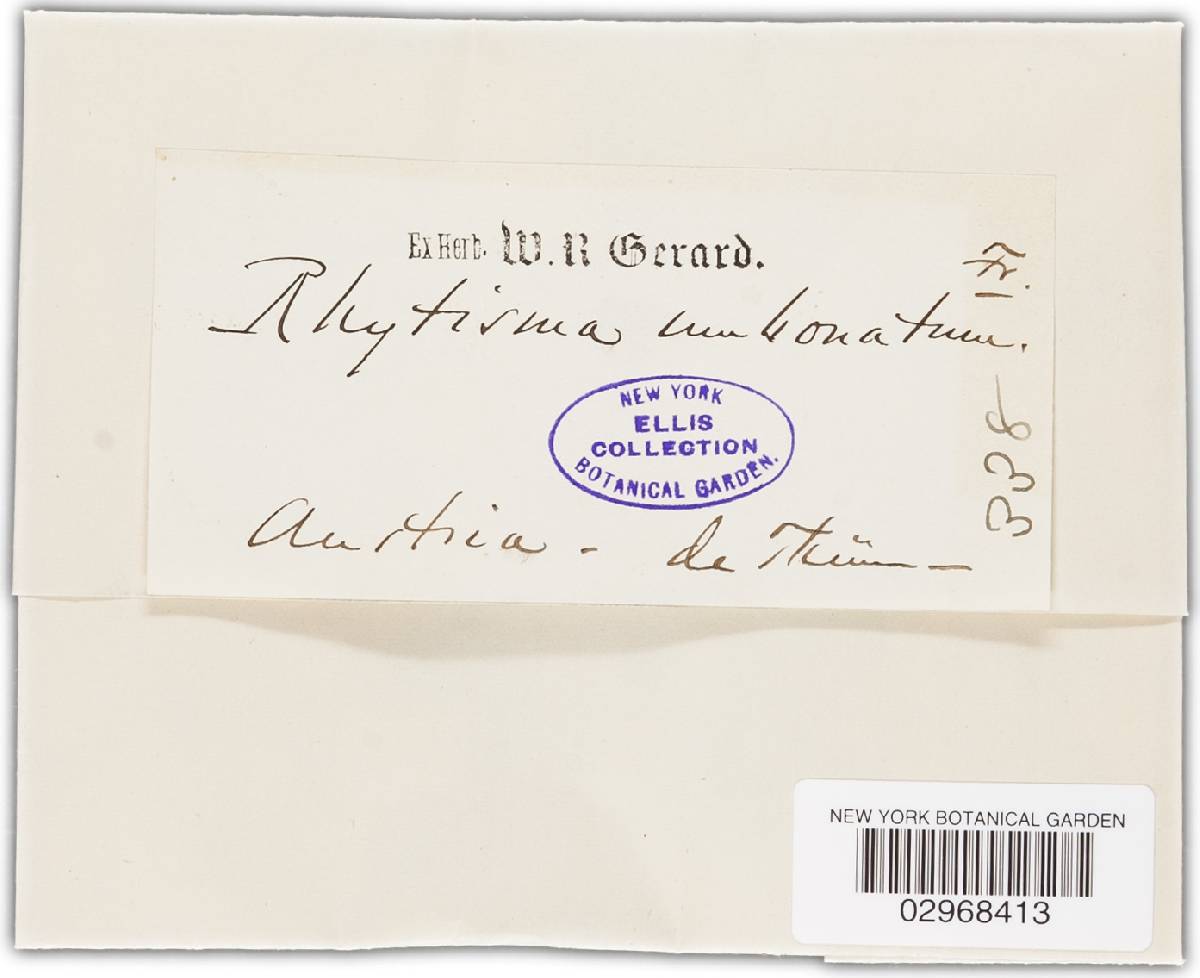 Ex Herb. W. R Gerard.
Rhytisma umbonatum.
Fr.
338
NEW YORK
ELLIS
COLLECTION
BOTANICAL GARDEN.
Austria - de Thüm -
NEW YORK BOTANICAL GARDEN
02968413